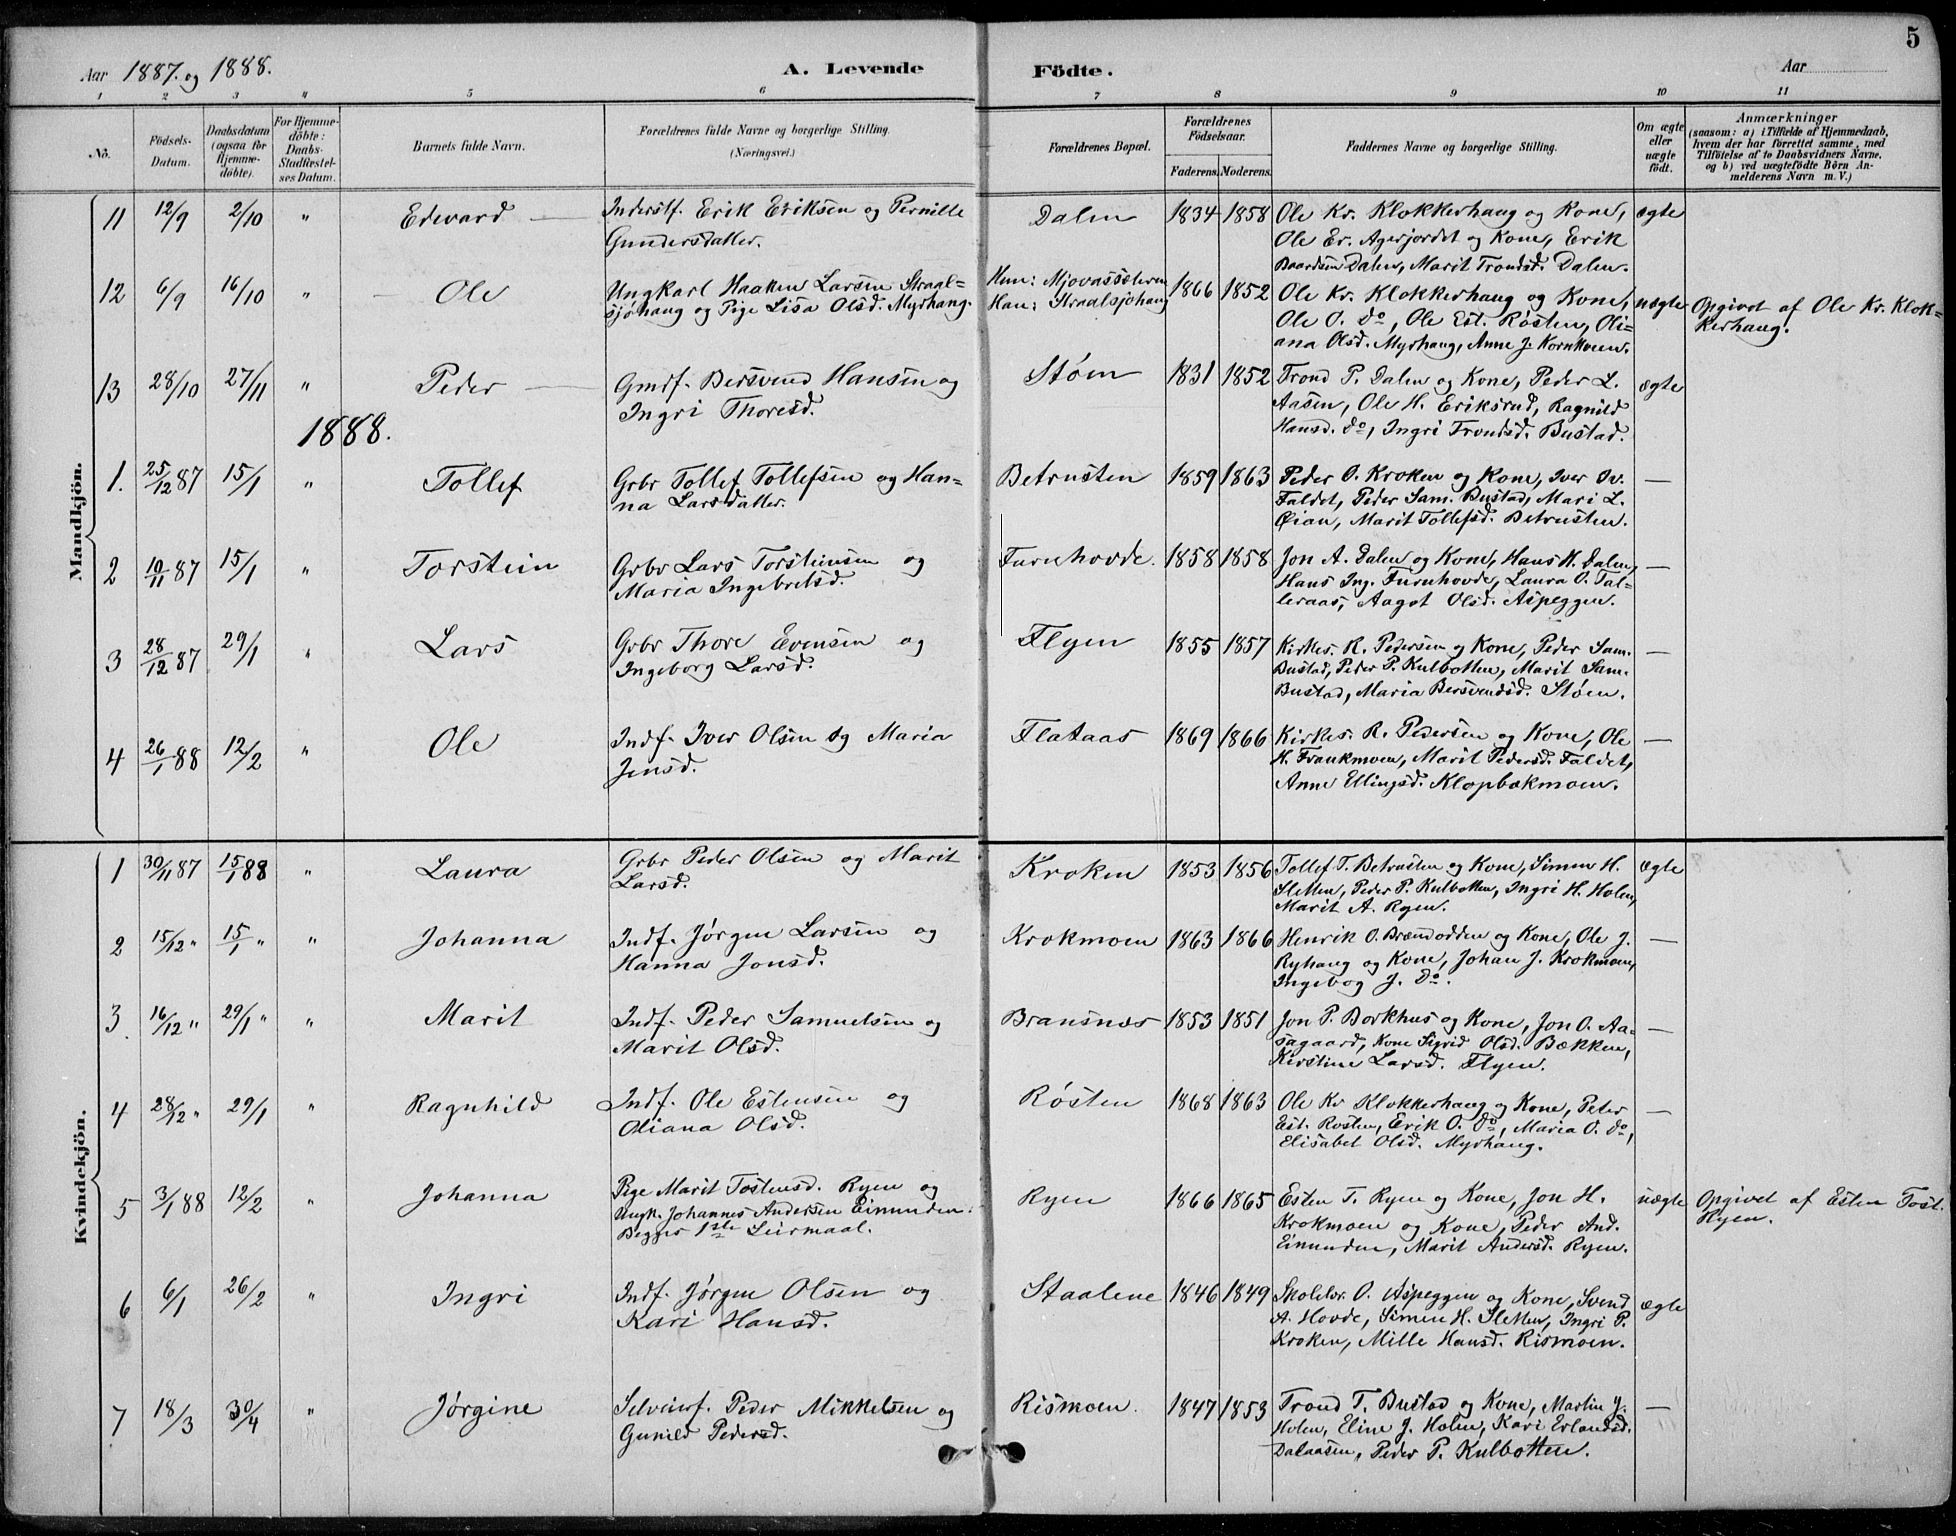 5
Aar 1887. og 1888.
A. Levende Födte.
Aar
1 2 3 4 5 6 7 8 9 10 11
No.
Födsels-Datum.
Daabsdatum (ogsaa for Hjemme-döbte).
For Hjemme-döbte: Daabs-Stadfæstel-ses Datum.
Barnets fulde Navn.
Forældrenes fulde Navne og borgerlige Stilling. (Næringsvei.)
Forældrenes Bopæl.
Forældrenes Födselsaar.
Faderens. Moderens.
Faddernes Navne og borgerlige Stilling.
Om ægte eller uægte födt.
Anmærkninger
(saasom: a) i Tilfælde af Hjemmedaab, hvem der har forrettet samme, med Tilföielse af to Daabsvidners Navne, og b) ved uægtefödte Börn An-melderens Navn m. V.)
Mandkjön.
11 12/9 2/10 " Edevard Inderstf. Erik Eriksen og Pernille Dalen 1834 1858 Ole Kr. Klokkerhaug og Kone, ægte
Gundersdatter. Ole Er. Agerjordet og Kone, Erik
Baardsen Dalen, Marit Trondsd. Dalen.
12 6/9 16/10 " Ole Ungkarl Haaken Larsen Straal= Hun: Mjovassæteren 1866 1852 Ole Kr. Klokkerhaug og Kone, uægte Opgivet af Ole Kr. Klok=
sjøhaug og Pige Lisa Olsd. Myrhaug. Han: Straalsjøhaug Ole O. do, Ole Est. Røsten, Oli= kerhaug.
ana Olsd. Myrhaug, Anne J. Kornkveen.
13 28/10 27/11 " Peder Gmdf. Bersvend Hansen og Støen 1831 1852 Trond P. Dalen og Kone, Peder L. ægte
Ingri Thoresd. Aasen, Ole H. Eriksrud, Ragnild
Hansd. do, Ingri Trondsd. Bustad.
1888.
1. 25/12 87 15/1 " Tollef Grbr Tollef Tollefsen og Han= Betrusten 1859 1863 Peder O. Kroken og Kone, Iver Iv. —
na Larsdatter. Faldet, Peder Sam. Bustad, Mari L.
Øian, Marit Tollefsd. Betrusten.
2 19/11 87 15/1 " Torstein Grbr Lars Torsteinsen og Furuhovde. 1858 1858 Jon A. Dalen og Kone, Hans H. Dalen, —
Maria Ingebretsd. Hans Ing. Furuhovde, Laura O. Tal=
leraas, Aagot Olsd. Aspeggen.
3 28/12 87 29/1 " Lars Grbr Thore Evensen og Flyen 1855 1857 Kirkes. R. Pedersen og Kone, Peder Sam. —
Ingeborg Larsd. Bustad, Peder P. Kulbotten, Marit Sam.
Bustad, Maria Bersvendsd. Støen.
4 26/1 88 12/2 " Ole Indf. Iver Olsen og Maria Flataas 1869 1866 Kirkes. R. Pedersen og Kone, Ole —
Jensd. H. Frankmoen, Marit Pedersd. Faldet,
Anne Ellingsd. Klopbækmoen.
Kvindekjön.
1 30/11 87 15/1 88 " Laura Grbr Peder Olsen og Marit Kroken 1853 1856 Tollef T. Betrusten og Kone, Simen H. ægte
Larsd. Sletten, Peder P. Kulbotten, Ingri H. Holen,
Marit A. Ryen.
2 15/12 " 15/1 " " Johanna Indf. Jørgen Larsen og Krokmoen 1863 1866 Henrik O. Brændodden og Kone, Ole J. —
Hanna Jonsd. Ryhaug og Kone, Johan J. Krokmoen,
Ingebog J. do.
3 16/12 " 29/1 " " Marit Indf. Peder Samuelsen og Bransnæs 1853 1851 Jon P. Borkhus og Kone, Jon O. Aa= —
Marit Olsd. sagaard, Kone Sigrid Olsd. Bækken,
Kirstine Larsd. Flyen.
4 28/12 " 29/1 " Ragnhild Indf. Ole Estensen og Røsten 1868 1863 Ole Kr Klokkerhaug og Kone, Peter —
Oliana Olsd. Est. Rosten, Erik O. do, Maria O. do,
Elisabet Olsd. Myrhaug.
5 3/1 88 12/2 " Johanna Pige Marit Tostensd. Ryen og Ryen 1866 1865 Esten T. Ryen og Kone, Jon H. uægte Opgivet af Esten Tost.
Ungk. Johannes Andersen Einunden. Krokmoen og Kone, Peder And. Ryen.
Begges 1ste Leirmaal. Einunden, Marit Andersd. Ryen.
6 6/1 26/2 " Ingri Indf. Jørgen Olsen og Staalene 1846 1849 Skolelr. O. Aspeggen og Kone, Svend ægte
Kari Hansd. A. Hovde, Simen H. Sletten, Ingri P.
Kroken, Mille Hansd. Rismoen.
7 18/3 30/4 " Jørgine Selveierf. Peder Mikkelsen og Rismoen. 1847 1853 Trond T. Bustad og Kone, Martin J. —
Gunild Pedersd. Holen, Eline J. Holen, Kari Erlandsd.
Dalaasen, Peder P. Kulbotten.